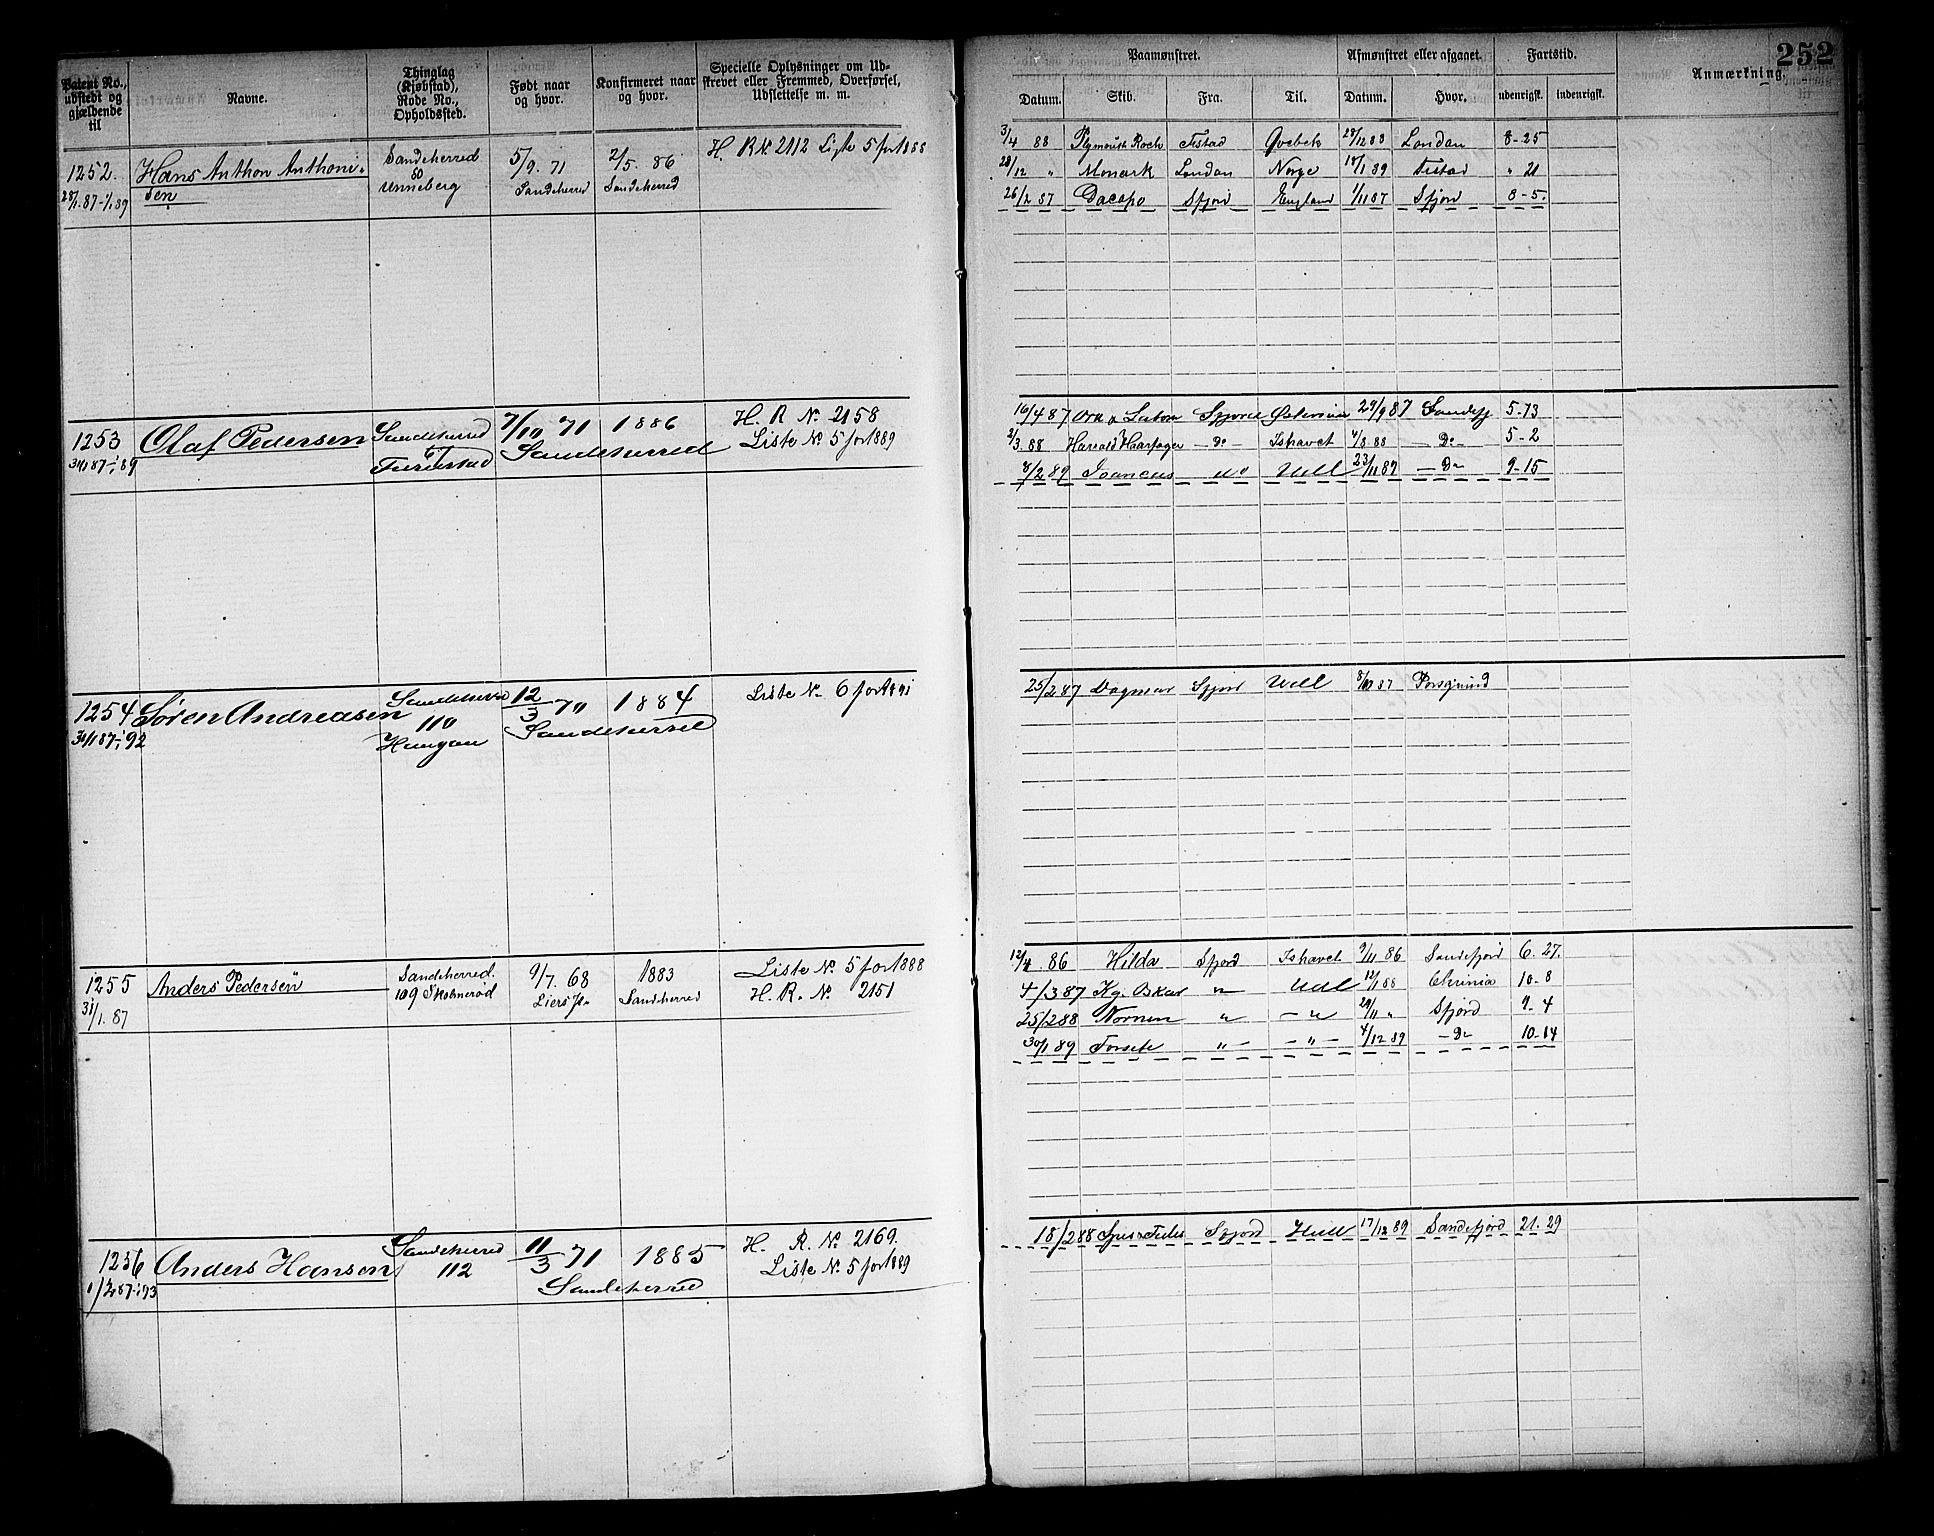 252
Patent No., udstedt og gjældende til
Navne.
Thinglag (Kjøbstad), Rode No., Opholdssted.
Født naar og hvor.
Konfirmeret naar og hvor.
Specielle Oplysninger om Udskrevet eller Fremmed, Overførsel, Udslettelse m. m.
Paamønstret.
Afmønstret eller afgaaet.
Fartstid.
Anmærkning.
Datum. Skib. Fra. Til. Datum. Hvor. udenrigsk. indenrigsk.
1252. Hans Anthon Anthoni- Sandeherred 5/9. 71 2/5. 86 H. R No. 2112 Liste 5 for 1888
28/1.87-1/1 89 sen 50 Unneberg Sandeherred Sandeherred
3/4 88 Plymouth Rock Fstad Qvebek 28/12 88 London 8-25
28/12 " Monark London Norge 18/1 89 Fstad " 21
26/2 87 Dacapo Sfjord England 1/11 87 Sfjord 8-5.
1253 Olaf Pedersen Sandeherred 7/10 71 1886 H. R No. 2158
31/1 87-1/1 89 67 Sandeherred Liste No. 5 for 1889
16/4 87 Sfjord 29/9 87 Sandefj 5-13
2/3 88 Harald Haarfager - Do - Ishavet 4/8 88 - Do 5-2
8/2 89 Do Udl 23/11 89 - Do 9-15
1254 Søren Andreasen Sandeherred 12/3 70 1884 Liste No. 6 for 1891
31/1 87-1/1 92 110 Haugan Sandeherred
25/2 87 Dagmar Sfjord Udl 8/10 87 Porsgrund
1255 Anders Pedersen Sandeherred. 9/7. 68 1883 Liste No. 5 for 1888
31/1. 87 109 Skolmerød Sandeherred H. R. No. 2151
12/4 86 Hilda Sfjord Ishavet 9/11 86 Sandefjord 6. 27.
4/3 87 Kg. Oskar " Udl 12/1 88 Chrinia 10-8
25/2 88 Nornen " - " 29/11 " Sfjord 9-4
30/1 89 Forsete - " - - " - 4/12 89 - Do 10-14
1256 Anders Hansen Sandeherred 11/3 71 1885 H. R. No. 2169.
1/2 87-1/1 93 112 Sandeherred Liste No. 5 for 1889
18/2 88 Sfjord Udl 17/12 89 Sandefjord 21. 29